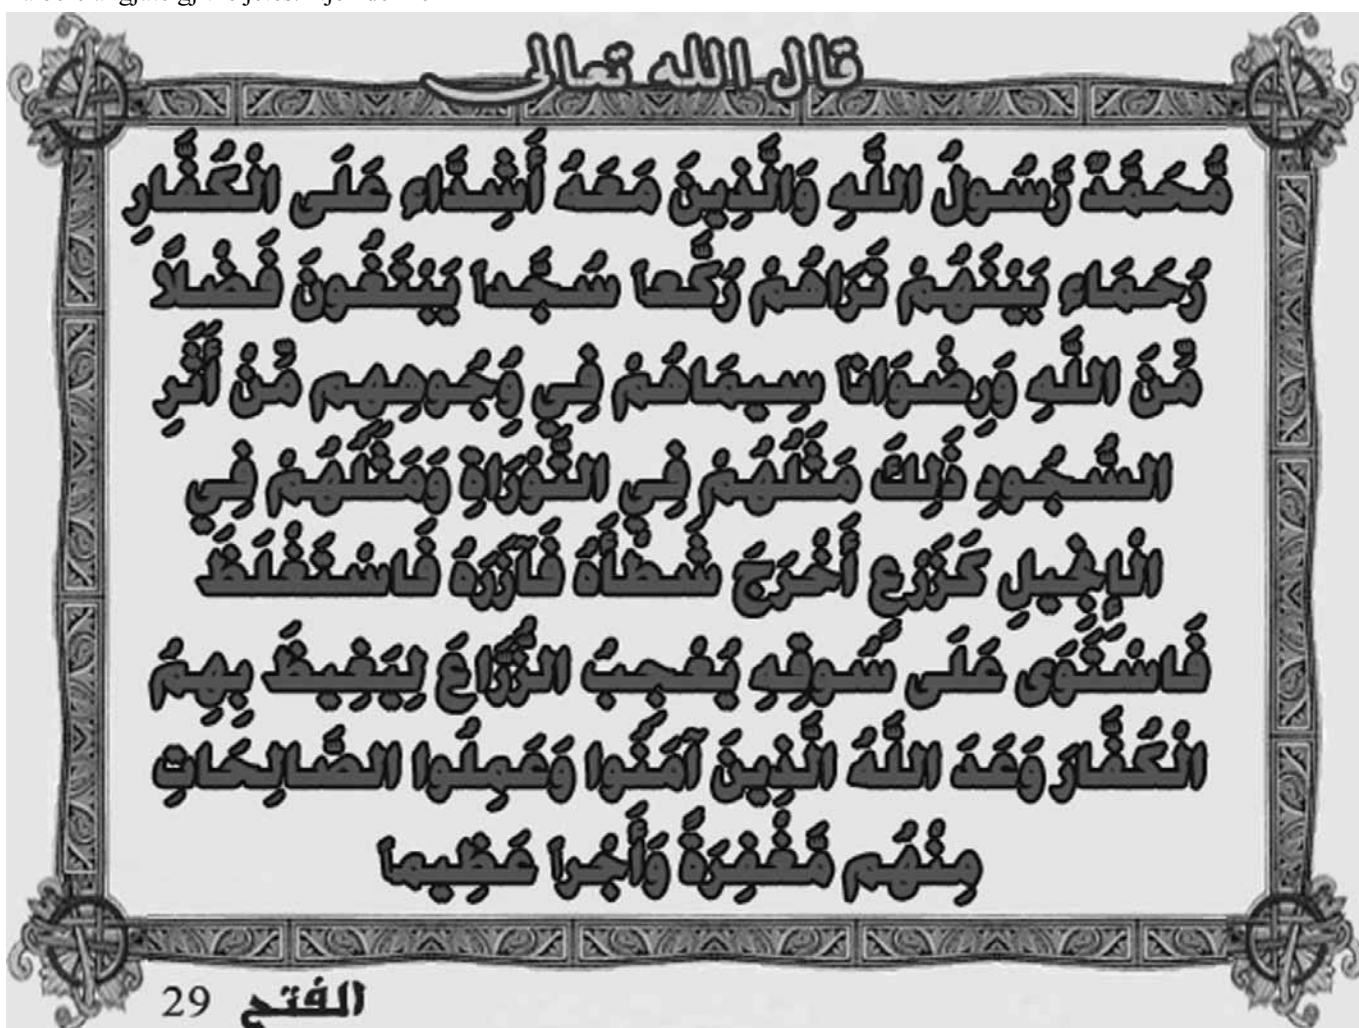 قال الله تعالى
مُّحَمَّدٌ رَّسُولُ اللَّهِ وَالَّذِينَ مَعَهُ أَشِدَّاء عَلَى الْكُفَّارِ
رُحَمَاء بَيْنَهُمْ تَرَاهُمْ رُكَّعاً سُجَّداً يَبْتَغُونَ فَضْلاً
مِّنَ اللَّهِ وَرِضْوَاناً سِيمَاهُمْ فِي وُجُوهِهِم مِّنْ أَثَرِ
السُّجُودِ ذَلِكَ مَثَلُهُمْ فِي التَّوْرَاةِ وَمَثَلُهُمْ فِي
الْإِنجِيلِ كَزَرْعٍ أَخْرَجَ شَطْأَهُ فَآزَرَهُ فَاسْتَغْلَظَ
فَاسْتَوَى عَلَى سُوقِهِ يُعْجِبُ الزُّرَّاعَ لِيَغِيظَ بِهِمُ
الْكُفَّارَ وَعَدَ اللَّهُ الَّذِينَ آمَنُوا وَعَمِلُوا الصَّالِحَاتِ
مِنْهُم مَّغْفِرَةً وَأَجْراً عَظِيماً
الفتح 29